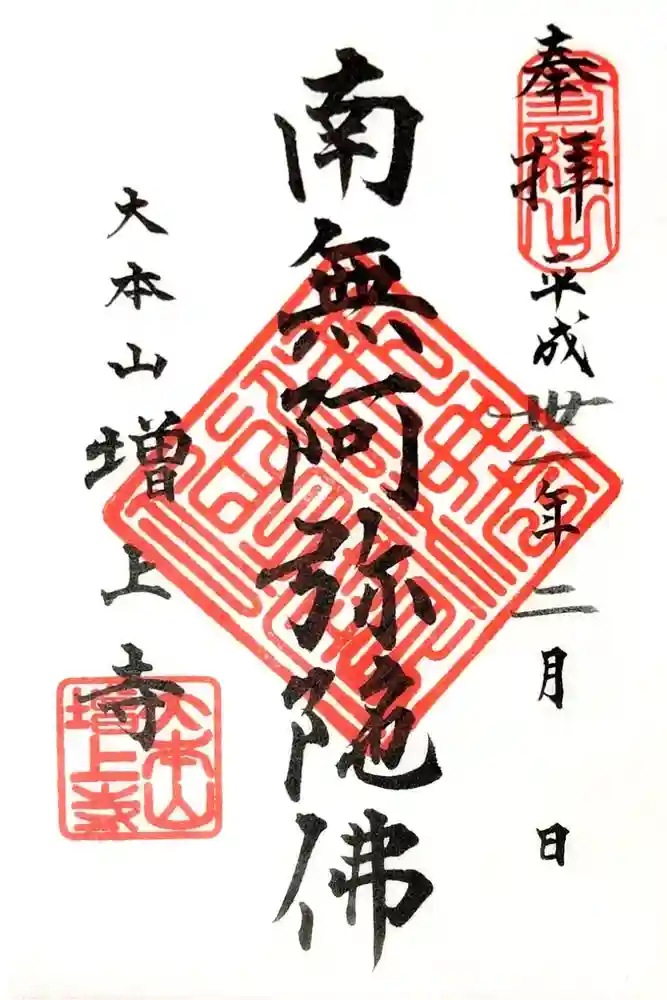 奉拝 平成卅一年二月 日
南無阿弥陀佛
大本山 増上寺
大本山
増上寺